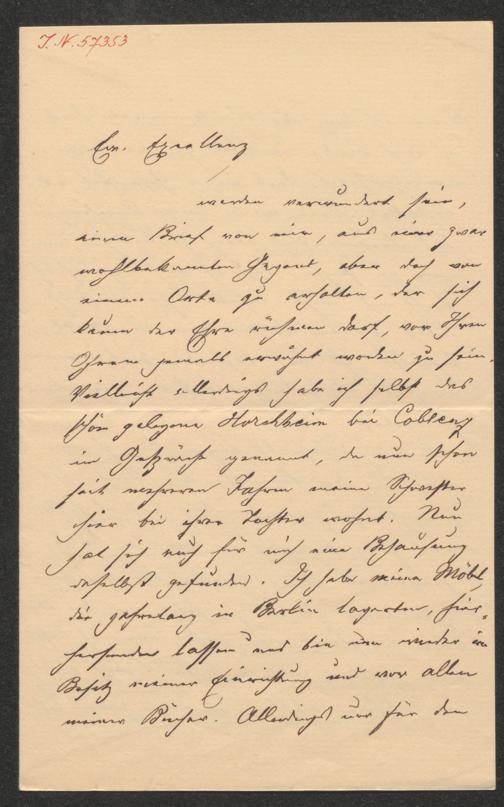 J. N. 57353
Ew. Excellenz
werden verwundert sein,
einen Brief von mir, aus einer zwar
wohlbekannten Gegend, aber doch von
einem Orte zu erhalten, der sich
kaum der Ehre rühmen darf, vor Ihren
Ohren jemals erwähnt worden zu sein.
Vielleicht allerdings habe ich selbst das
schön gelegene Horchheim bei Coblenz
im Gespräch genannt, da nun schon
seit mehreren Jahren meine Schwester
hier bei ihrer Tochter wohnt. Nun
hat sich auch für mich eine Behausung
daselbst gefunden. Ich habe meine Möbel,
die jahrelang in Berlin lagerten, hier-
hersenden lassen und bin nun wieder im
Besitz meiner Einrichtung und vor allem
meiner Bücher. Allerdings nur für den